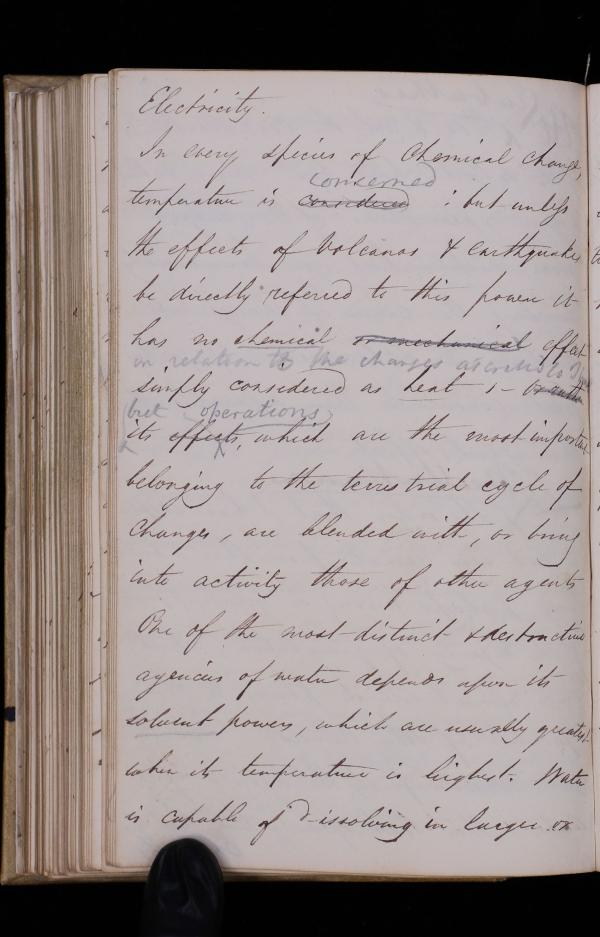 Electricity.
In every species of Chemical change,
concerned
temperature is considered : but unless
the effects of Volcanos & earthquakes
be directly referred to this power it
has no chemical or mechanical effect
in relation to the changes
simply considered as heat ; -
but operations
its effects, which are the most important
belonging to the terrestrial cycle of
changes, are blended with, or bring
into activity those of other agents
One of the most distinct & destructive
agencies of water depends upon its
solvent powers, which are usually greatest
when its temperature is highest. Water
is capable of dissolving in larger